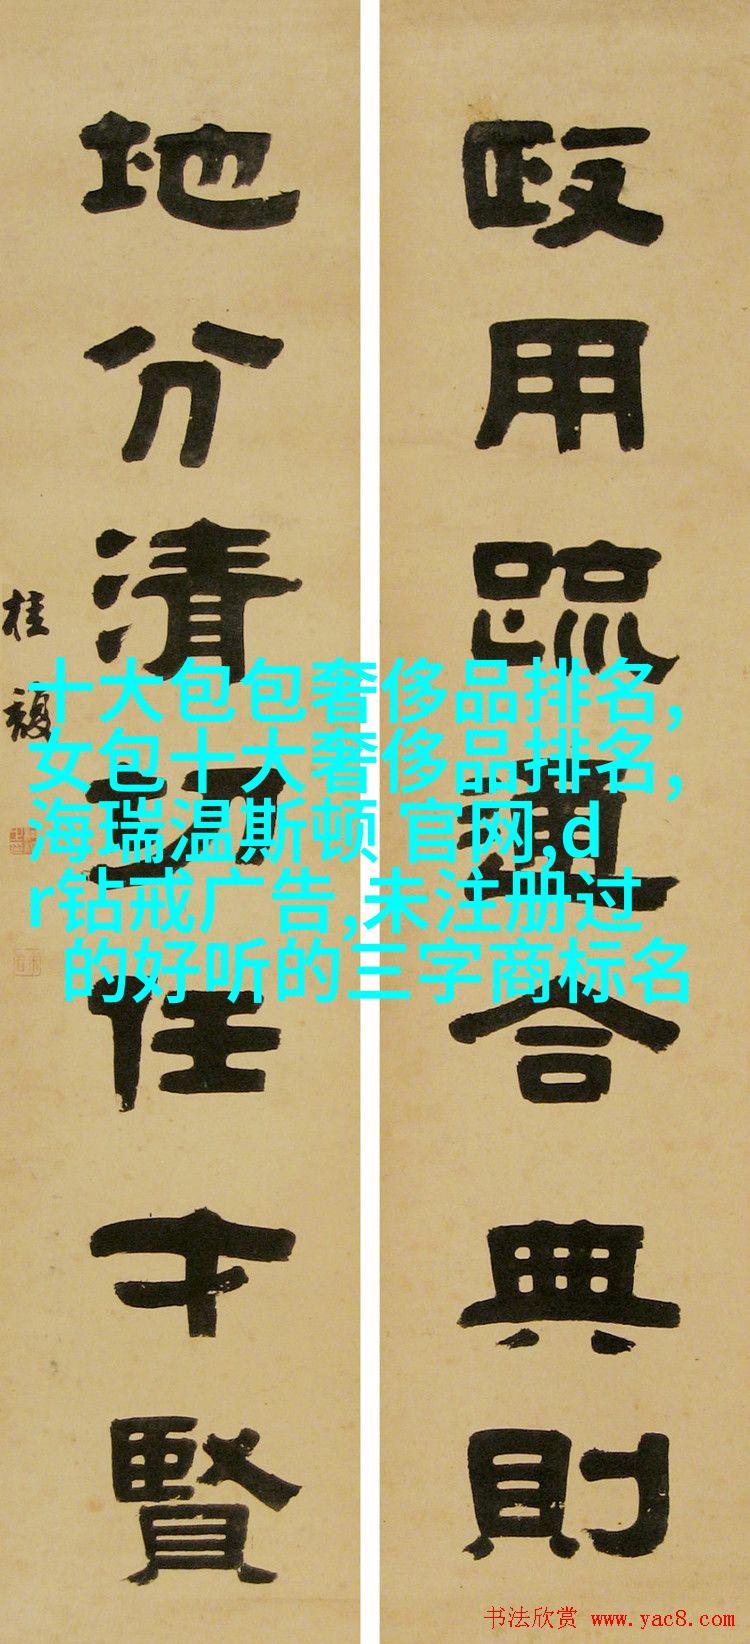 政用疏通合典則
地分清切任才賢
桂馥
十大包包奢侈品排名,
女包十大奢侈品排名,
海瑞温斯顿 官网,d
r钻戒广告,未注册过
的好听的三字商标名
书法欣赏 www.yac8.com